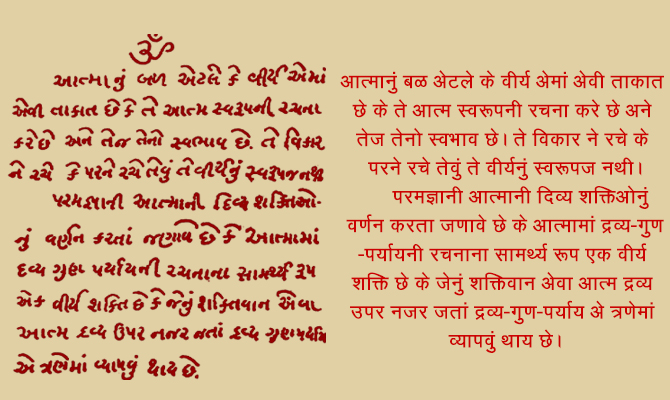 ૐ
આત્માનું બળ એટલે કે વીર્ય એમાં
એવી તાકાત છે કે તે આત્મ સ્વરૂપની રચના
કરે છે અને તેજ તેનો સ્વભાવ છે. તે વિકાર
ને રચે કે પરને રચે તેવું તે વીર્યનું સ્વરૂપજ નથી
પરમજ્ઞાની આત્માની દિવ્ય શક્તિઓ-
નું વર્ણન કરતાં જણાવે છે કે આત્મામાં
દ્રવ્ય ગુણ પર્યાયની રચનાના સામર્થ્ય રૂપ
એક વીર્ય શક્તિ છે કે જેનું શક્તિવાન એવા
આત્મ દ્રવ્ય ઉપર નજર જતાં દ્રવ્ય ગુણ પર્યાય
એ ત્રણેમાં વ્યાપવું થાય છે.
आत्मानुं बळ अेटले के वीर्य अेमां अेवी ताकात
छे के ते आत्म स्वरूपनी रचना करे छे अने
तेज तेनो स्वभाव छे। ते विकार ने रचे के
परने रचे तेवुं ते वीर्यनुं स्वरूपज नथी।
परमज्ञानी आत्मानी दिव्य शक्तिओनुं
वर्णन करता जणावे छे के आत्मामां द्रव्य-गुण
-पर्यायनी रचनाना सामर्थ्य रूप एक वीर्य
शक्ति छे के जेनुं शक्तिवान अेवा आत्म द्रव्य
उपर नजर जतां द्रव्य-गुण-पर्याय अे त्रणेमां
व्यापवुं थाय छे।